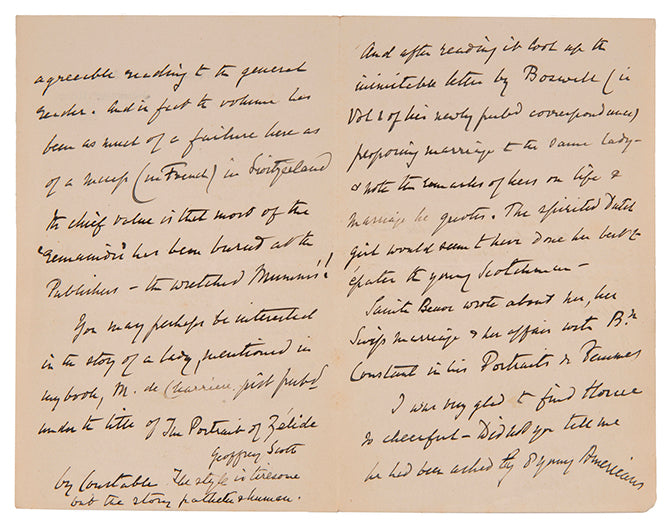 agreeable reading to the general
reader. And in fact the volume has
been as much of a failure here as
of a success (in French) in Switzerland
Its chief value is that most of the
"remainder" has been buried at the
Publishers – the wretched
You may perhaps be interested
in the story of a lady, mentioned in
my book, M. de Charrière, just pubd
under the title of The Portrait of Zélide
Geoffrey Scott
by Constable. The style is tiresome
but the story pathetic & human.
And after reading it look up the
inimitable letter by Boswell (in
Vol 2 of his newly pubd correspondence)
proposing marriage to the same lady –
& note the remarks of hers on life &
marriage he quotes. The spirited Dutch
girl would seem to have done her best to
épater the young Scotchman –
Sainte Beuve wrote about her, her
Swiss marriage & her affair with Bn
Constant in his Portraits de Femmes
I was very glad to find Horace
so cheerful – Did not you tell me
he had been asked by 8 young Americans